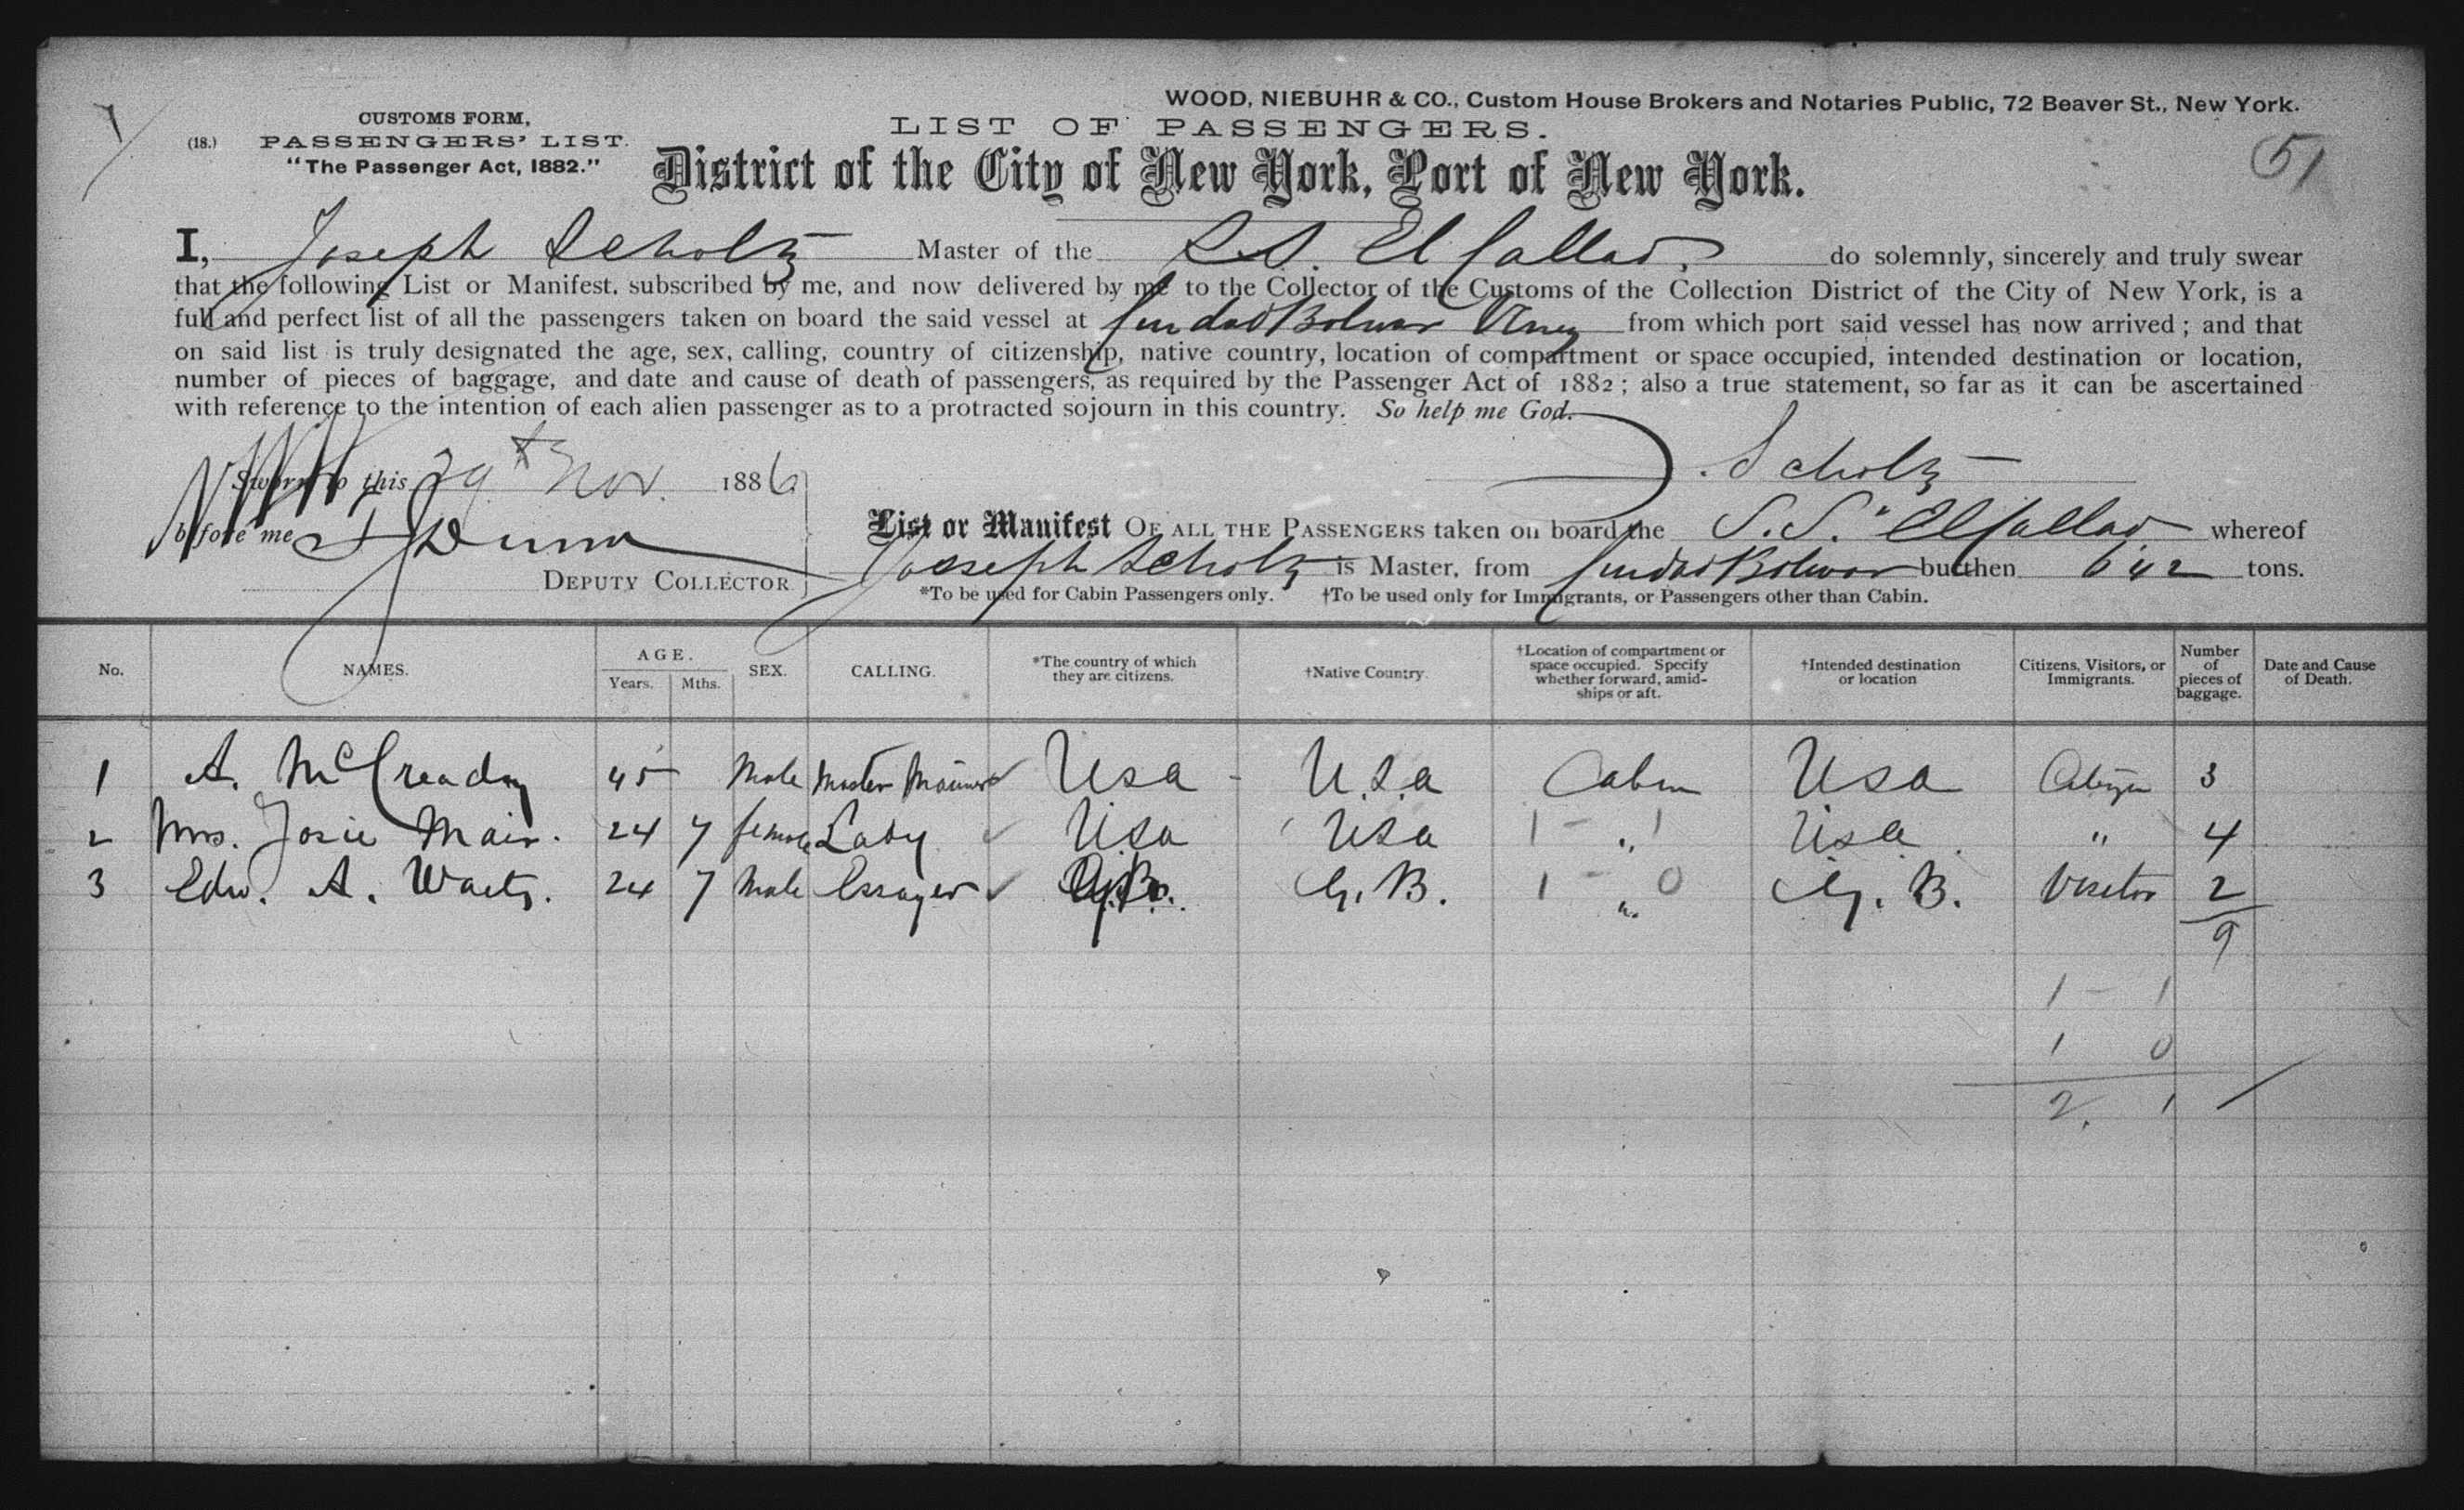 WOOD, NIEBUHR & CO., Custom House Brokers and Notaries Public, 72 Beaver St., New York.
CUSTOMS FORM,
LIST OF PASSENGERS.
(18.) PASSENGERS' LIST.
51
"The Passenger Act, 1882."
District of the City of New York, Port of New York.
I, Joseph Scholtz Master of the S.S. El Callao. do solemnly, sincerely and truly swear
that the following List or Manifest, subscribed by me, and now delivered by me to the Collector of the Customs of the Collection District of the City of New York, is a
full and perfect list of all the passengers taken on board the said vessel at Ciudad Bolivar Venez from which port said vessel has now arrived; and that
on said list is truly designated the age, sex, calling, country of citizenship, native country, location of compartment or space occupied, intended destination or location,
number of pieces of baggage, and date and cause of death of passengers, as required by the Passenger Act of 1882; also a true statement, so far as it can be ascertained
with reference to the intention of each alien passenger as to a protracted sojourn in this country. So help me God.
J. Scholtz
Sworn to this 29th Nov. 1886
before me Dunn
DEPUTY COLLECTOR
List or Manifest OF ALL THE PASSENGERS taken on board the S.S. "El Callao whereof
Joseph Scholtz is Master, from Ciudad Bolivar burthen 642 tons.
*To be used for Cabin Passengers only. †To be used only for Immigrants, or Passengers other than Cabin.
No. NAMES. AGE. Years. Mths. SEX. CALLING. *The country of which they are citizens. †Native Country. †Location of compartment or space occupied. Specify whether forward, amidships or aft. †Intended destination or location Citizens, Visitors, or Immigrants. Number of pieces of baggage. Date and Cause of Death.
1 A. McCready 45 Male Master Mariner Usa U.S.a Cabin Usa Citizen 3
2 Mrs. Josie Mair. 24 7 female Lady Usa Usa 1 - " 1 Usa. " 4
3 Edw. A. 24 7 Male Essayer G.B. G.B. 1 - " 0 G.B. Visitor 2
9
1 - 1
1 0
2. 1